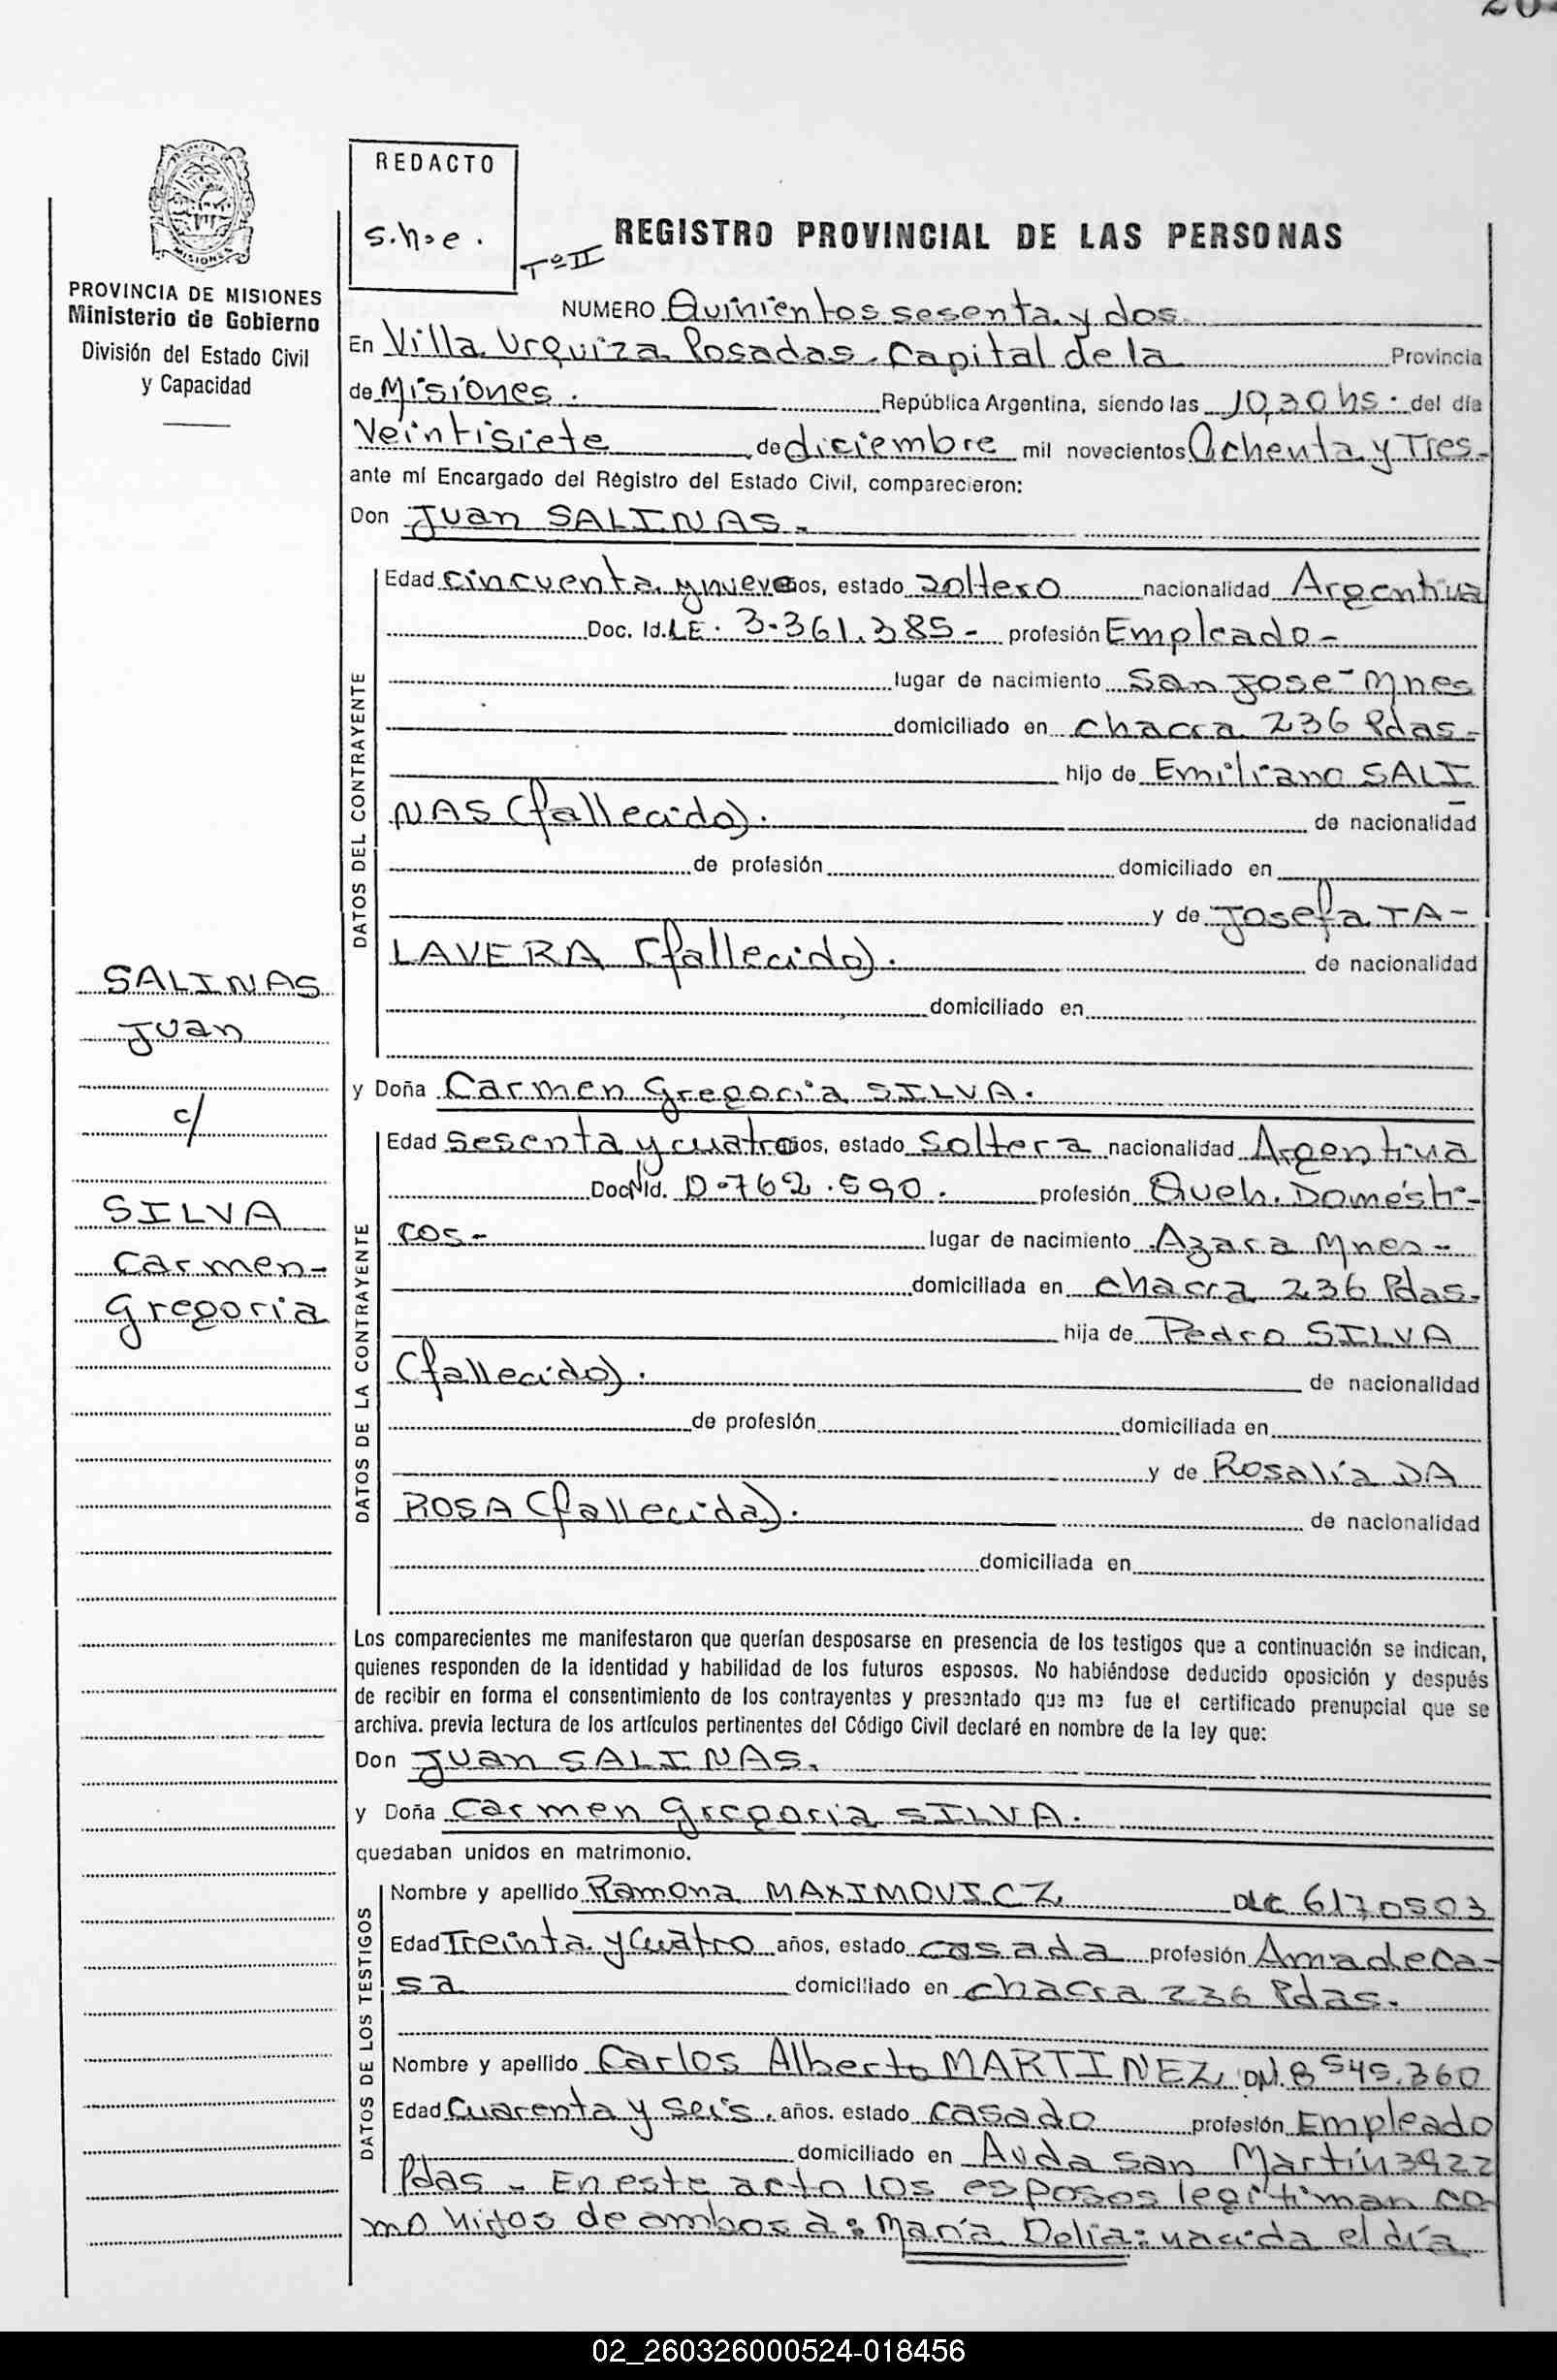 REDACTO
s.h.e.
Tº II
REGISTRO PROVINCIAL DE LAS PERSONAS
PROVINCIA DE MISIONES
Ministerio de Gobierno
División del Estado Civil
y Capacidad
NUMERO Quinientos sesenta y dos
En Villa Urquiza Posadas. Capital de la Provincia
de Misiones. República Argentina, siendo las 10,30 hs. del día
Veintisiete de diciembre mil novecientos Ochenta y Tres-
ante mí Encargado del Registro del Estado Civil, comparecieron:
Don Juan SALINAS.
DATOS DEL CONTRAYENTE
Edad cincuenta y nueve años, estado soltero nacionalidad Argentina
Doc. Id. LE. 3.361.385- profesión Empleado-
lugar de nacimiento San Jose- Mnes
domiciliado en chacra 236 Pdas-
hijo de Emiliano SALI
NAS (fallecido). de nacionalidad
de profesión domiciliado en
y de Josefa TA-
LAVERA (fallecido). de nacionalidad
domiciliado en
SALINAS
Juan
c/
SILVA
Carmen-
Gregoria
y Doña Carmen Gregoria SILVA.
DATOS DE LA CONTRAYENTE
Edad Sesenta y cuatro años, estado Soltera nacionalidad Argentina
Doc. Id. 0.762.590. profesión Queh. Domésti-
cos- lugar de nacimiento Azara Mnes-
domiciliada en chacra 236 Pdas.
hija de Pedro SILVA
(fallecido). de nacionalidad
de profesión domiciliada en
y de Rosalía DA
ROSA (fallecida). de nacionalidad
domiciliada en
Los comparecientes me manifestaron que querían desposarse en presencia de los testigos que a continuación se indican,
quienes responden de la identidad y habilidad de los futuros esposos. No habiéndose deducido oposición y después
de recibir en forma el consentimiento de los contrayentes y presentado que me fue el certificado prenupcial que se
archiva. previa lectura de los artículos pertinentes del Código Civil declaré en nombre de la ley que:
Don Juan SALINAS.
y Doña Carmen Gregoria SILVA.
quedaban unidos en matrimonio.
DATOS DE LOS TESTIGOS
Nombre y apellido Ramona MAXIMOVICZ 6170503
Edad Treinta y Cuatro años, estado casada profesión Ama de Ca-
sa domiciliado en chacra 236 Pdas.
Nombre y apellido Carlos Alberto MARTINEZ DNI. 8 545.360
Edad Cuarenta y Seis. años. estado casado profesión Empleado
domiciliado en Avda San Martín 3922
Pdas - En este acto los esposos legitiman co-
mo hijos de ambos a: María Delia: nacida el día
02_260326000524-018456